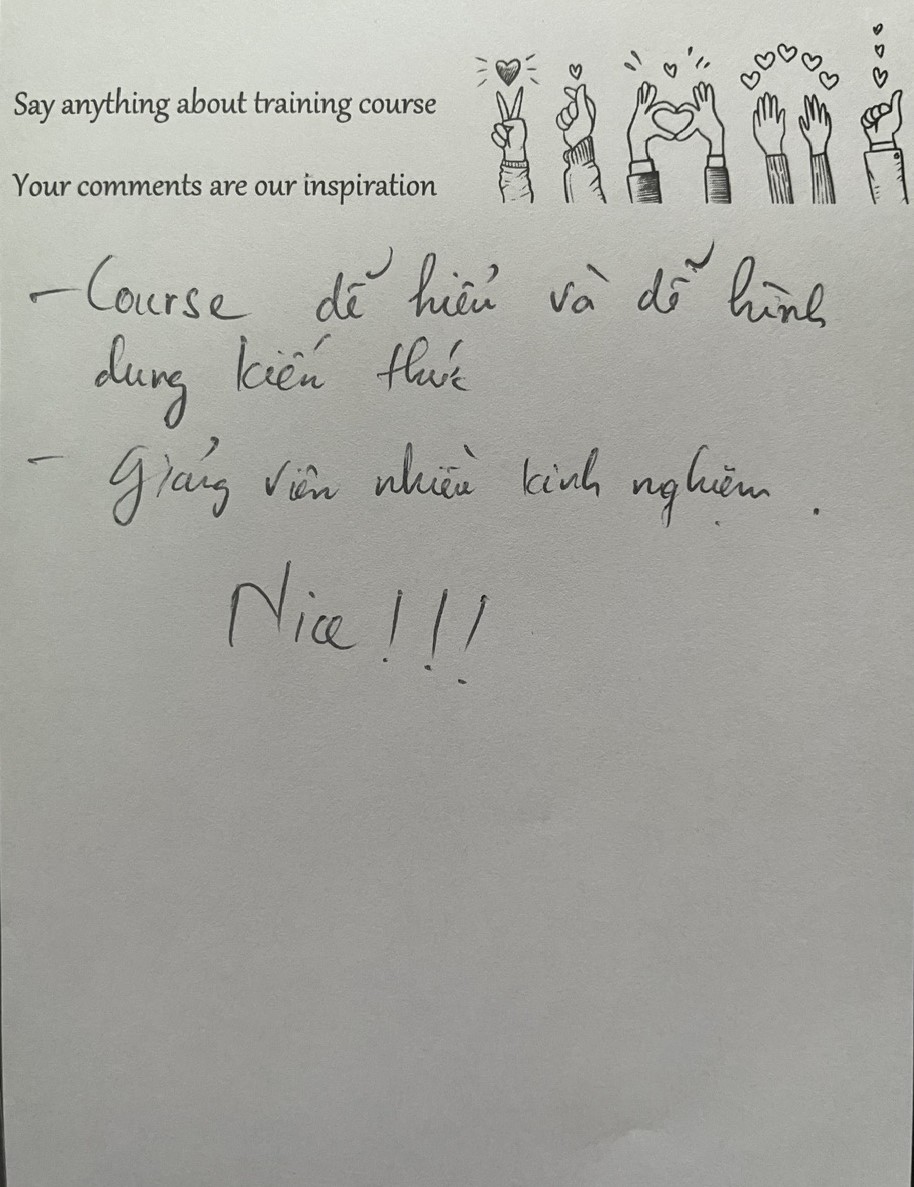 Say anything about training course
Your comments are our inspiration
- Course dễ hiểu và dễ hình
dung kiến thức
- Giảng viên nhiều kinh nghiệm.
Nice!!!